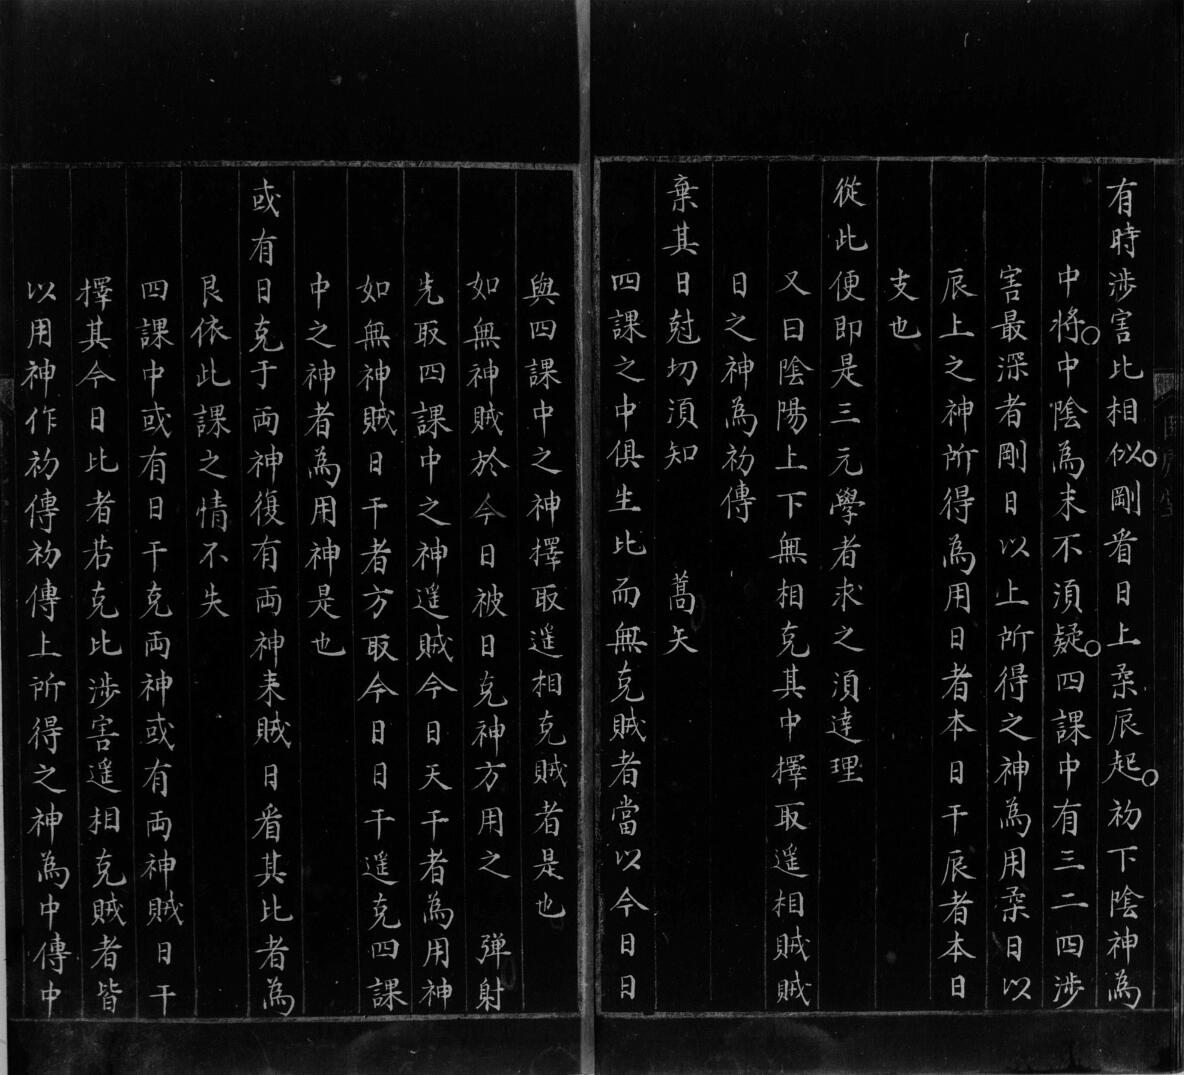 有時涉害比相似剛看日上柔辰起初下陰神為
中將中陰為末不須疑四課中有三二四涉
害最深者剛日以上所得之神為用柔日以
辰上之神所得為用日者本日干辰者本日
支也
從此便即是三元學者求之須達理
又曰陰陽上下無相克其中擇取遥相賊賊
日之神為初傳
棄其日尅切須知　　蒿矢
四課之中俱生比而無克賊者當以今日日
與四課中之神擇取遥相克賊者是也
如無神賊於今日被日克神方用之　彈射
先取四課中之神遥賊今日天干者為用神
如無神賊日干者方取今日日干遥克四課
中之神者為用神是也
或有日克于両神復有両神来賊日看其比者為
良依此課之情不失
四課中或有日干克両神或有両神賊日干
擇其今日比者若克比涉害遥相克賊者皆
以用神作初傳初傳上所得之神為中傳中